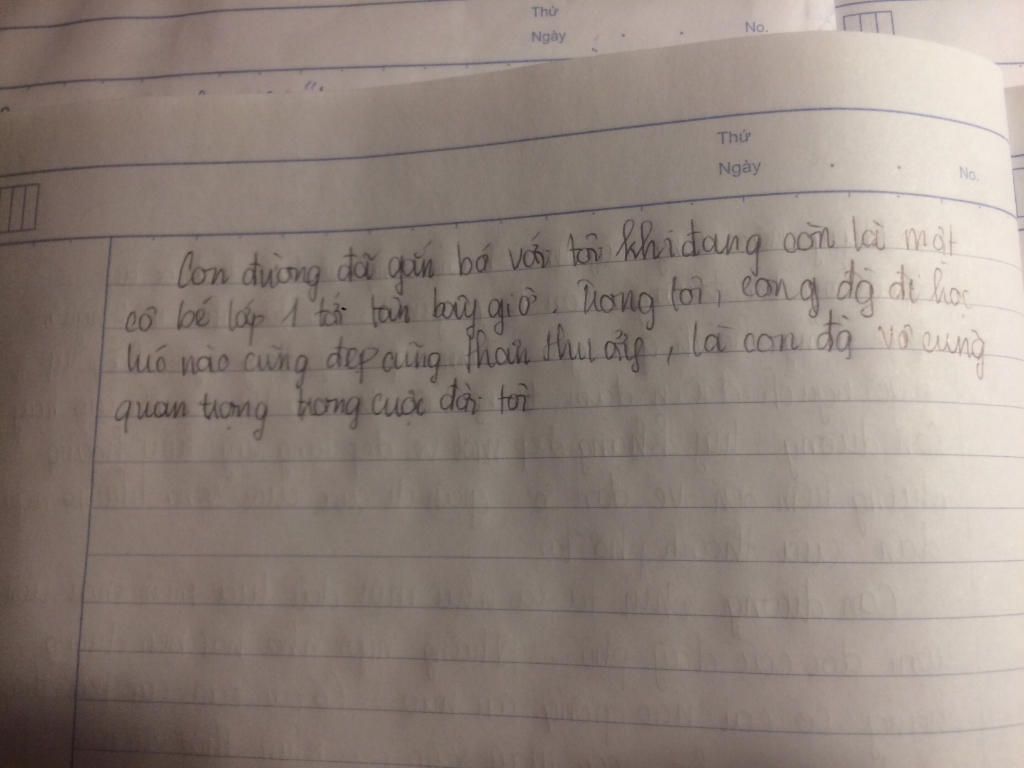 Thứ
Ngày
No.
Thứ
Ngày
No.
Con đường đã gắn bó với tôi khi đang còn là một
cô bé lớp 1 tới tận bây giờ. Trong tôi, con g đg đi học
luó nào cũng đẹp cũng thân thương, là con đg vô cùng
quan trọng trong cuộc đời tôi